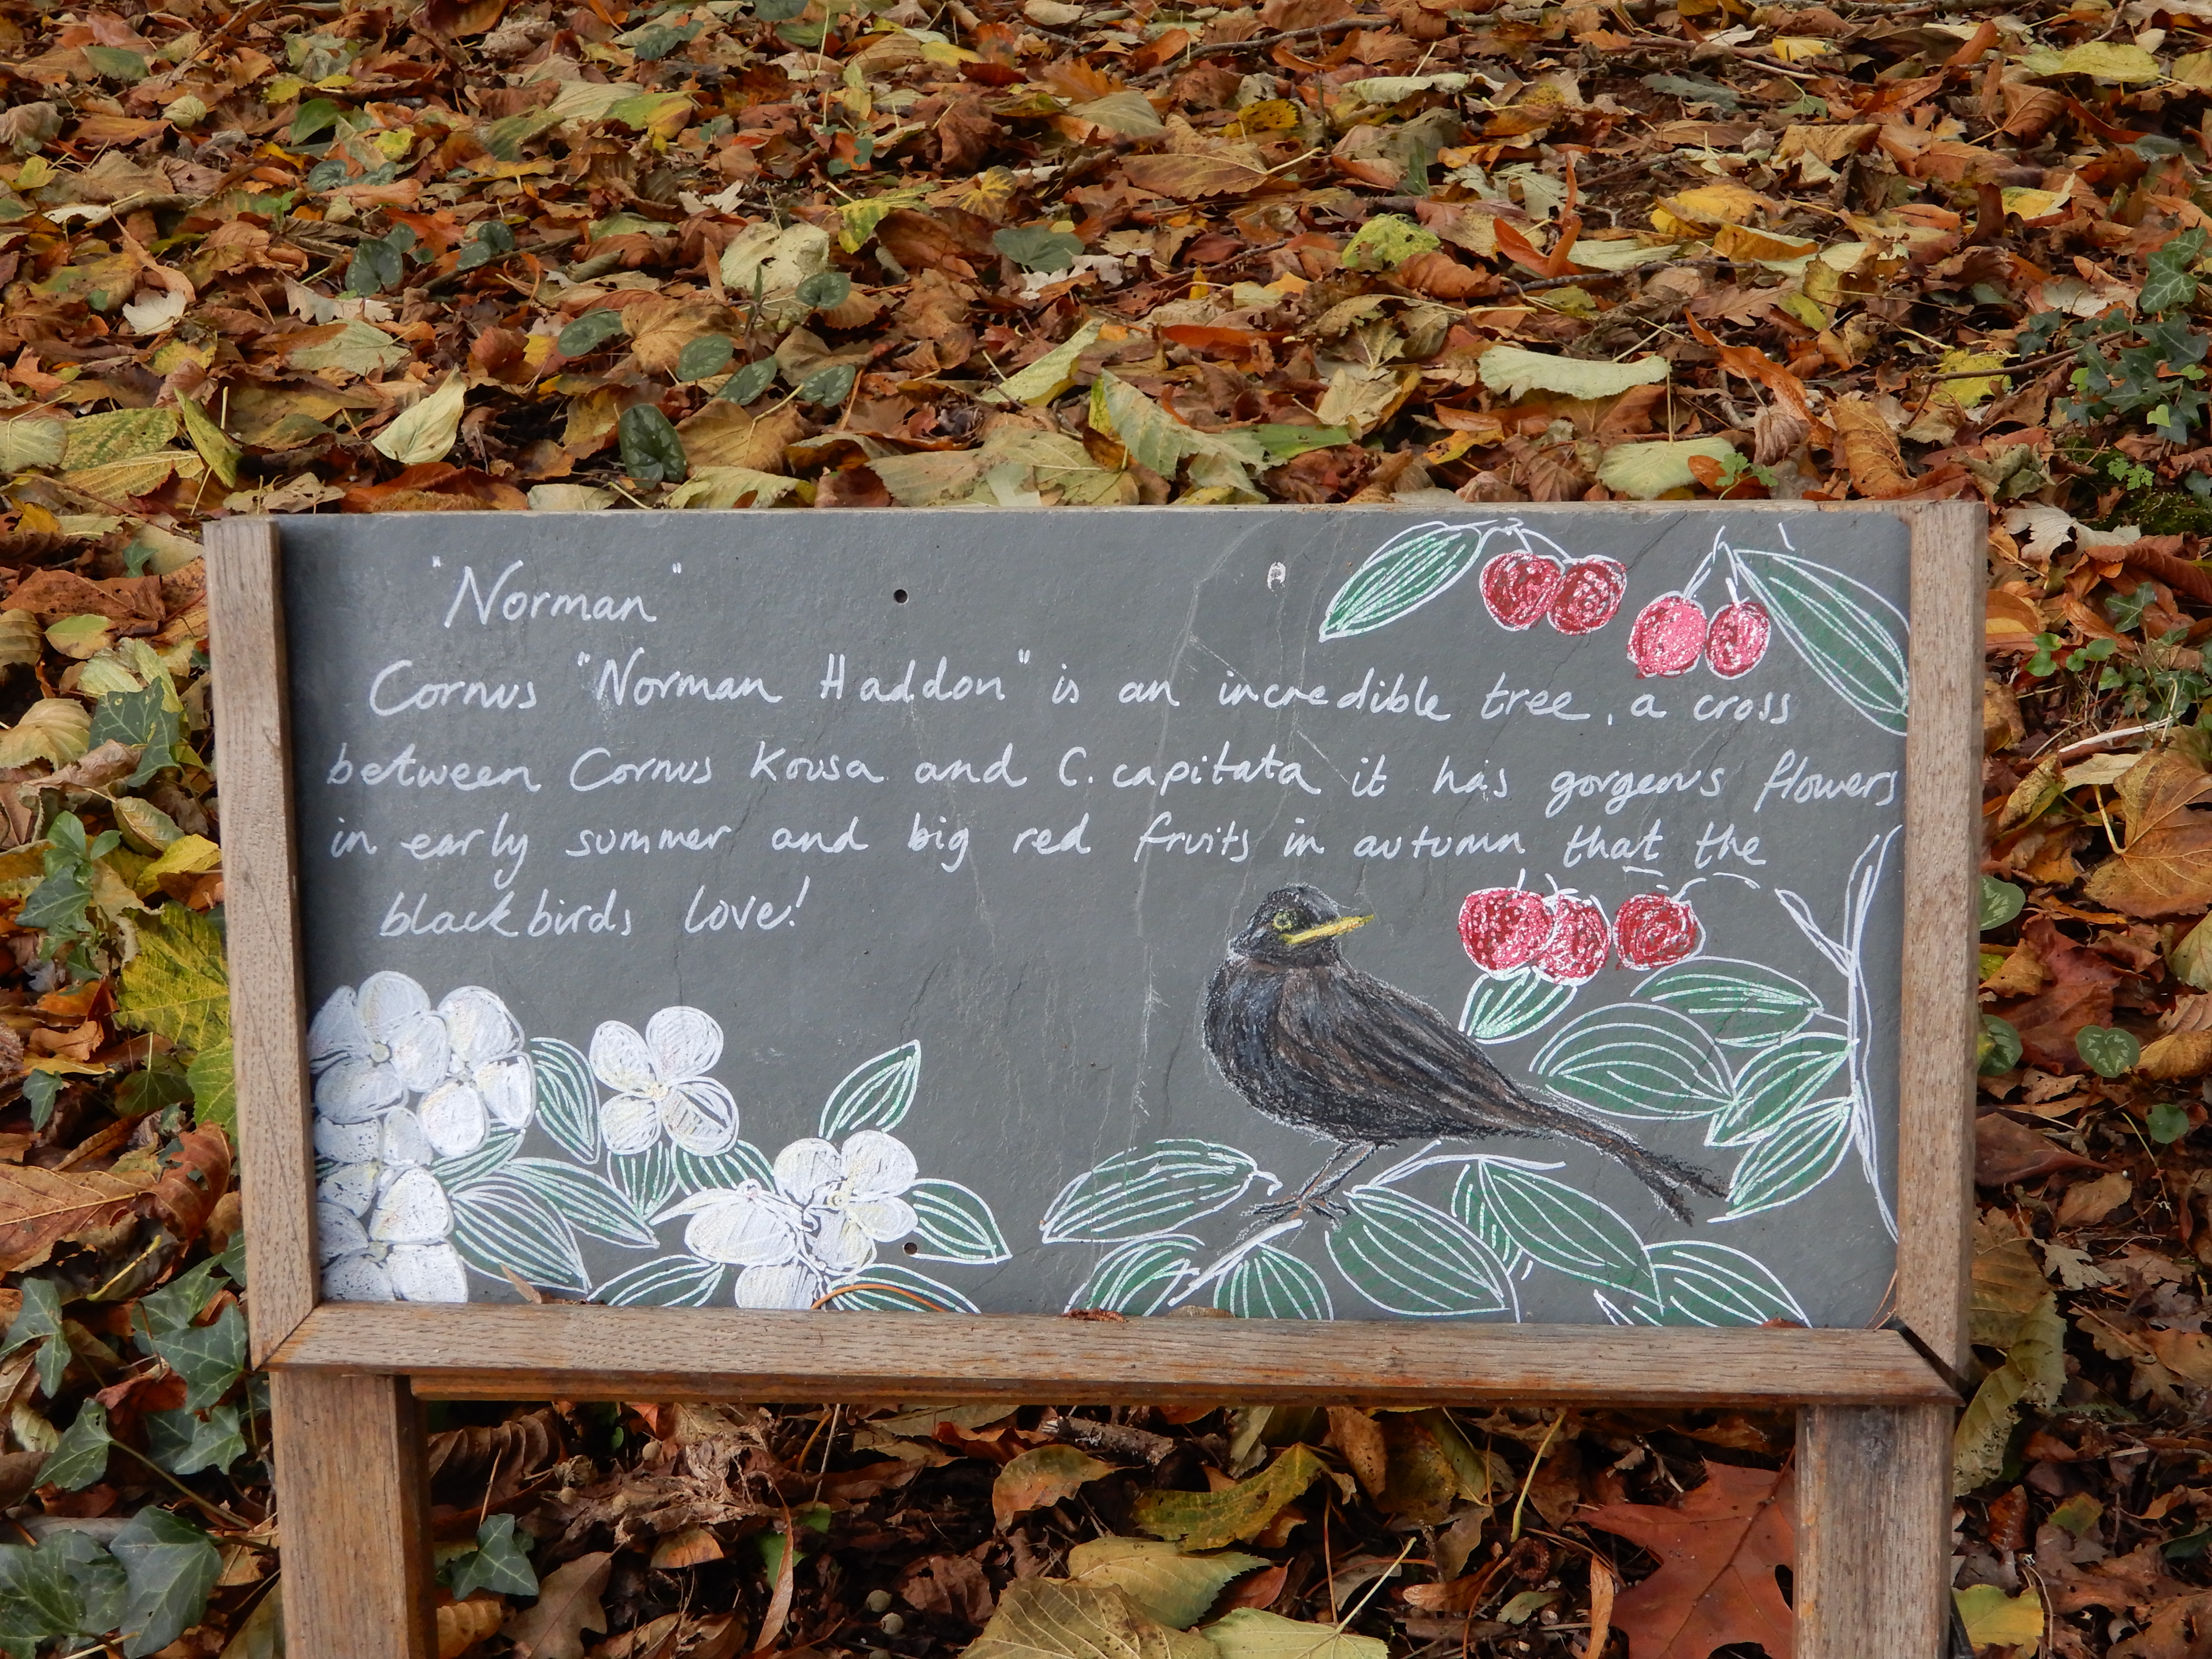 "Norman"
Cornus "Norman Haddon" is an incredible tree, a cross
between Cornus Kousa and C. capitata it has gorgeous flowers
in early summer and big red fruits in autumn that the
blackbirds love!